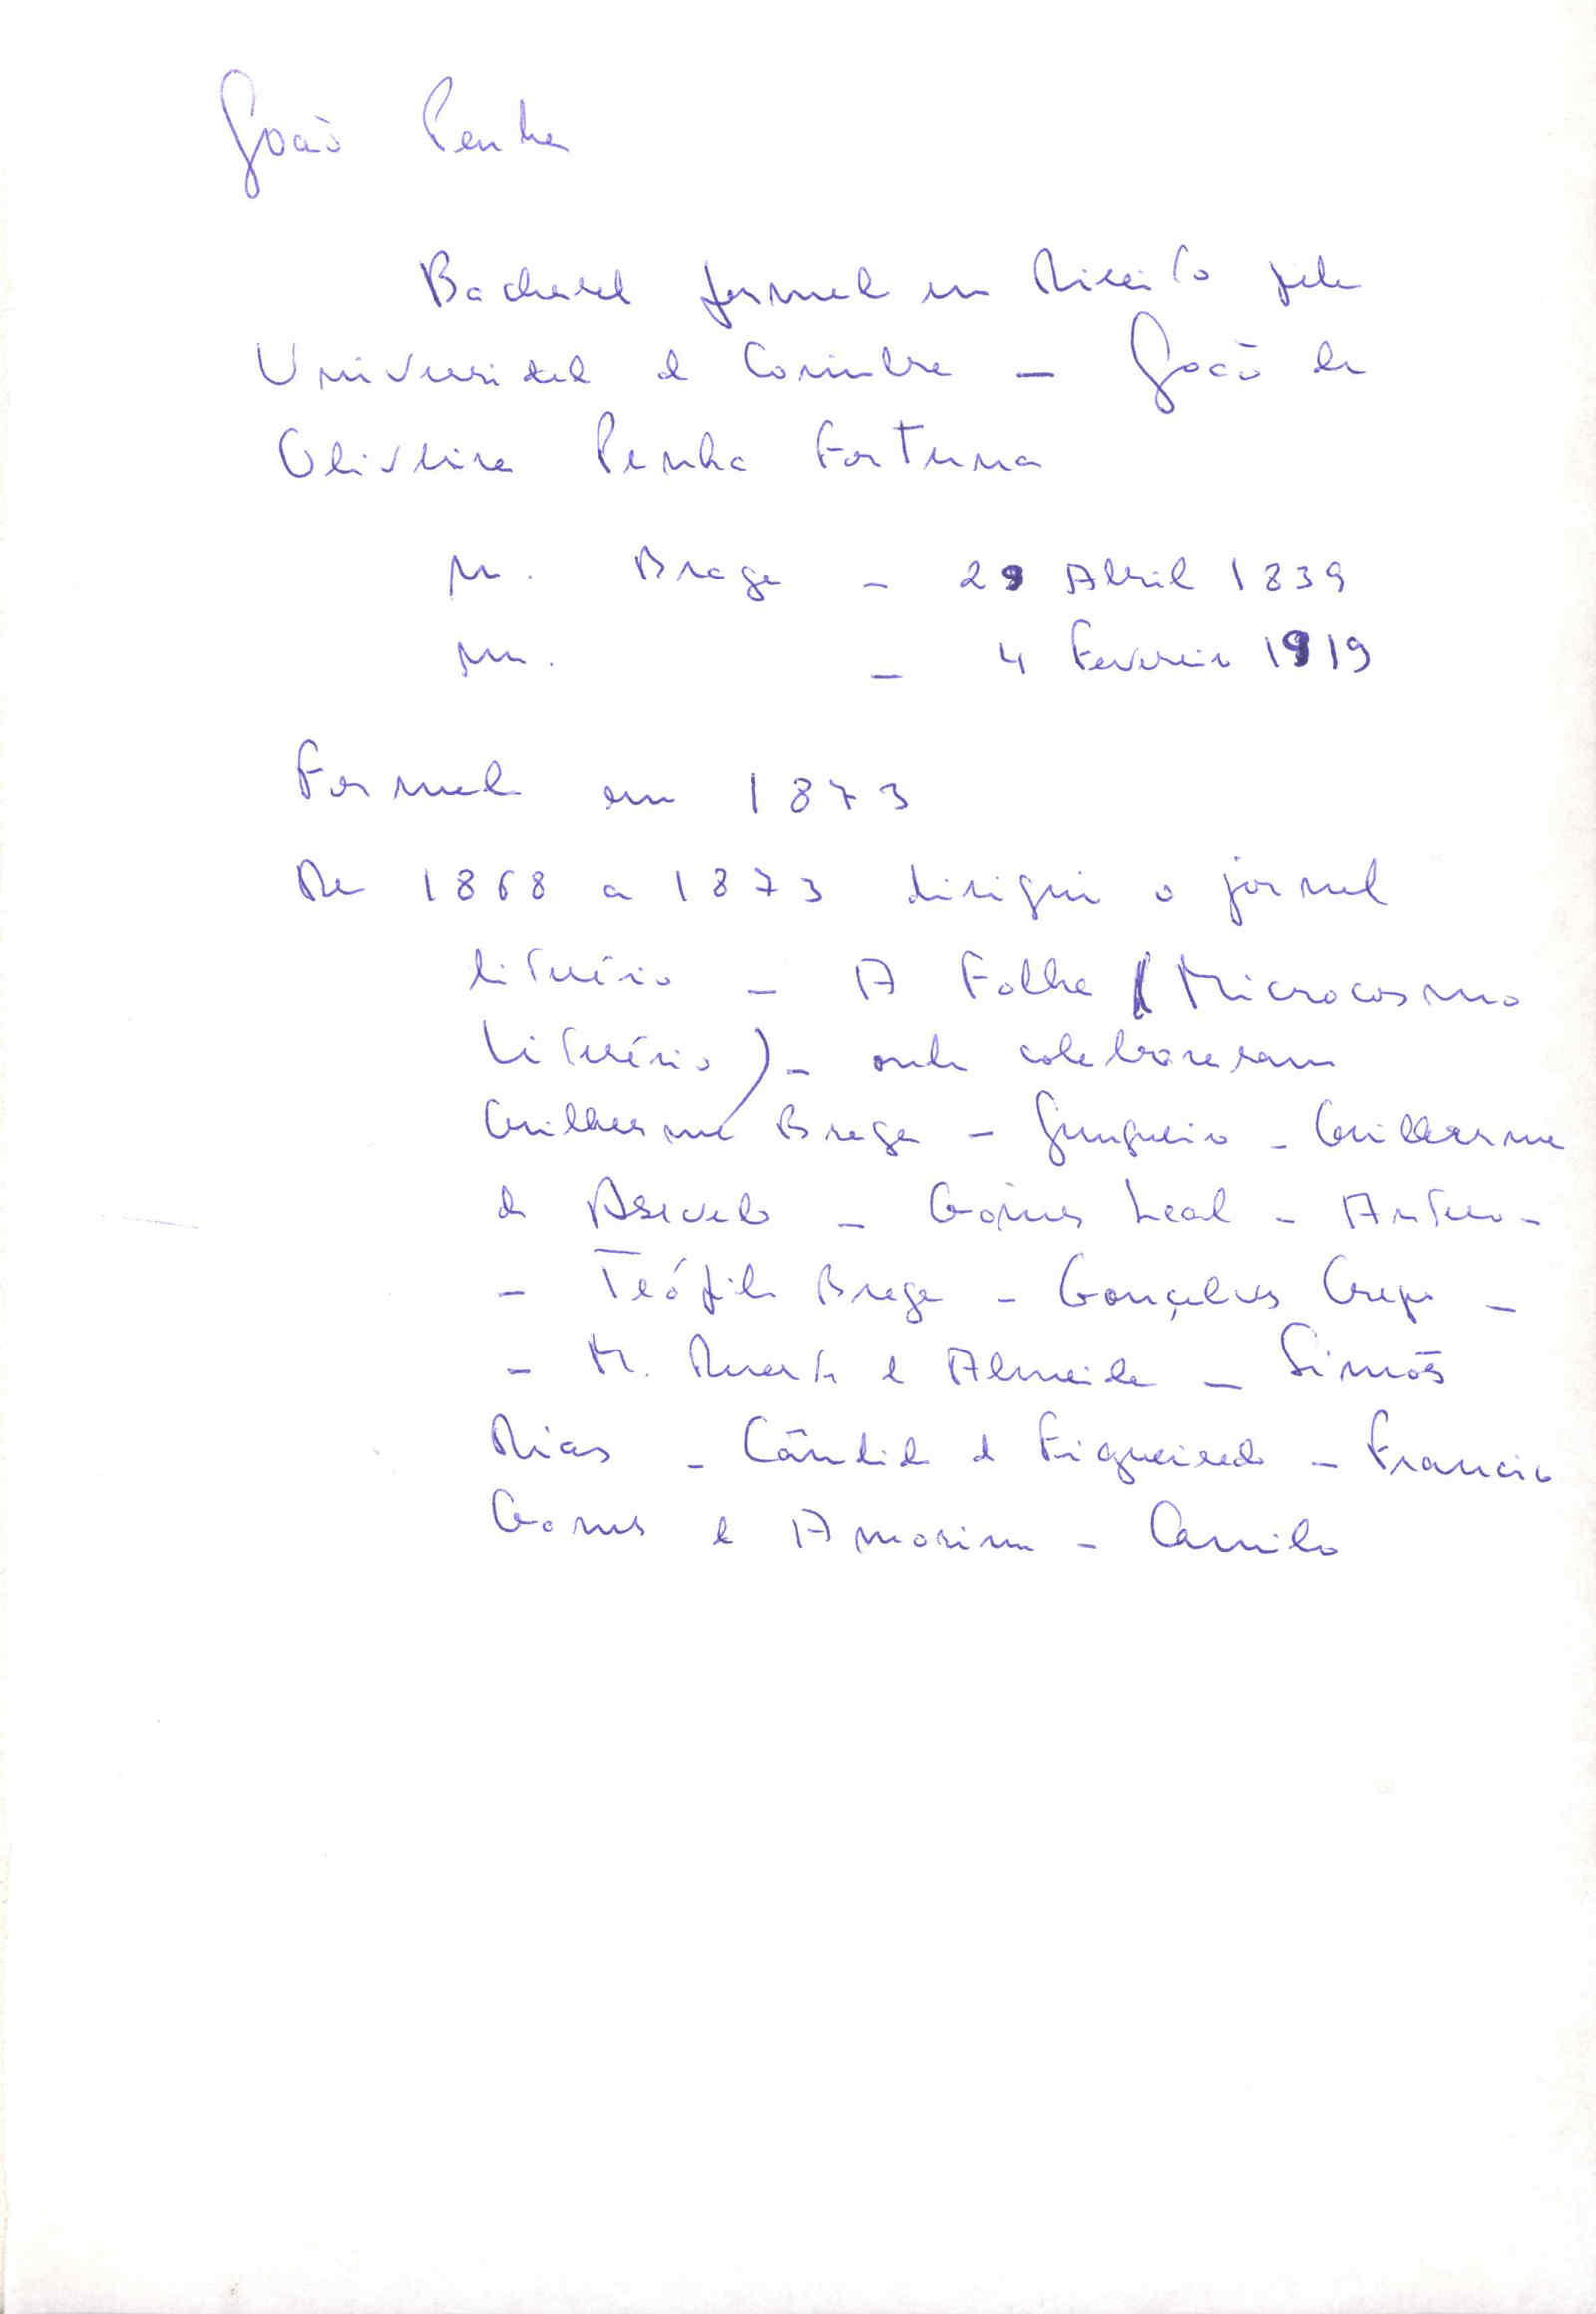 João Penha
Bacharel formado em Direito pela
Universidade de Coimbra — João de
Oliveira Penha Fortuna
n. Braga - 29 Abril 1839
m. - 4 Fevereiro 1919
Formado em 1873
De 1868 a 1873 dirigiu o jornal
literário - A Folha (Microcosmo
Literário) - onde colaboraram
Guilherme Braga - Junqueiro - Guilherme
de Azevedo - Gomes Leal - Antero -
- Teófilo Braga - Gonçalves Crespo -
- M. Duarte d'Almeida - Simões
Dias - Cândido de Figueiredo - Francisco
Gomes de Amorim - Camilo